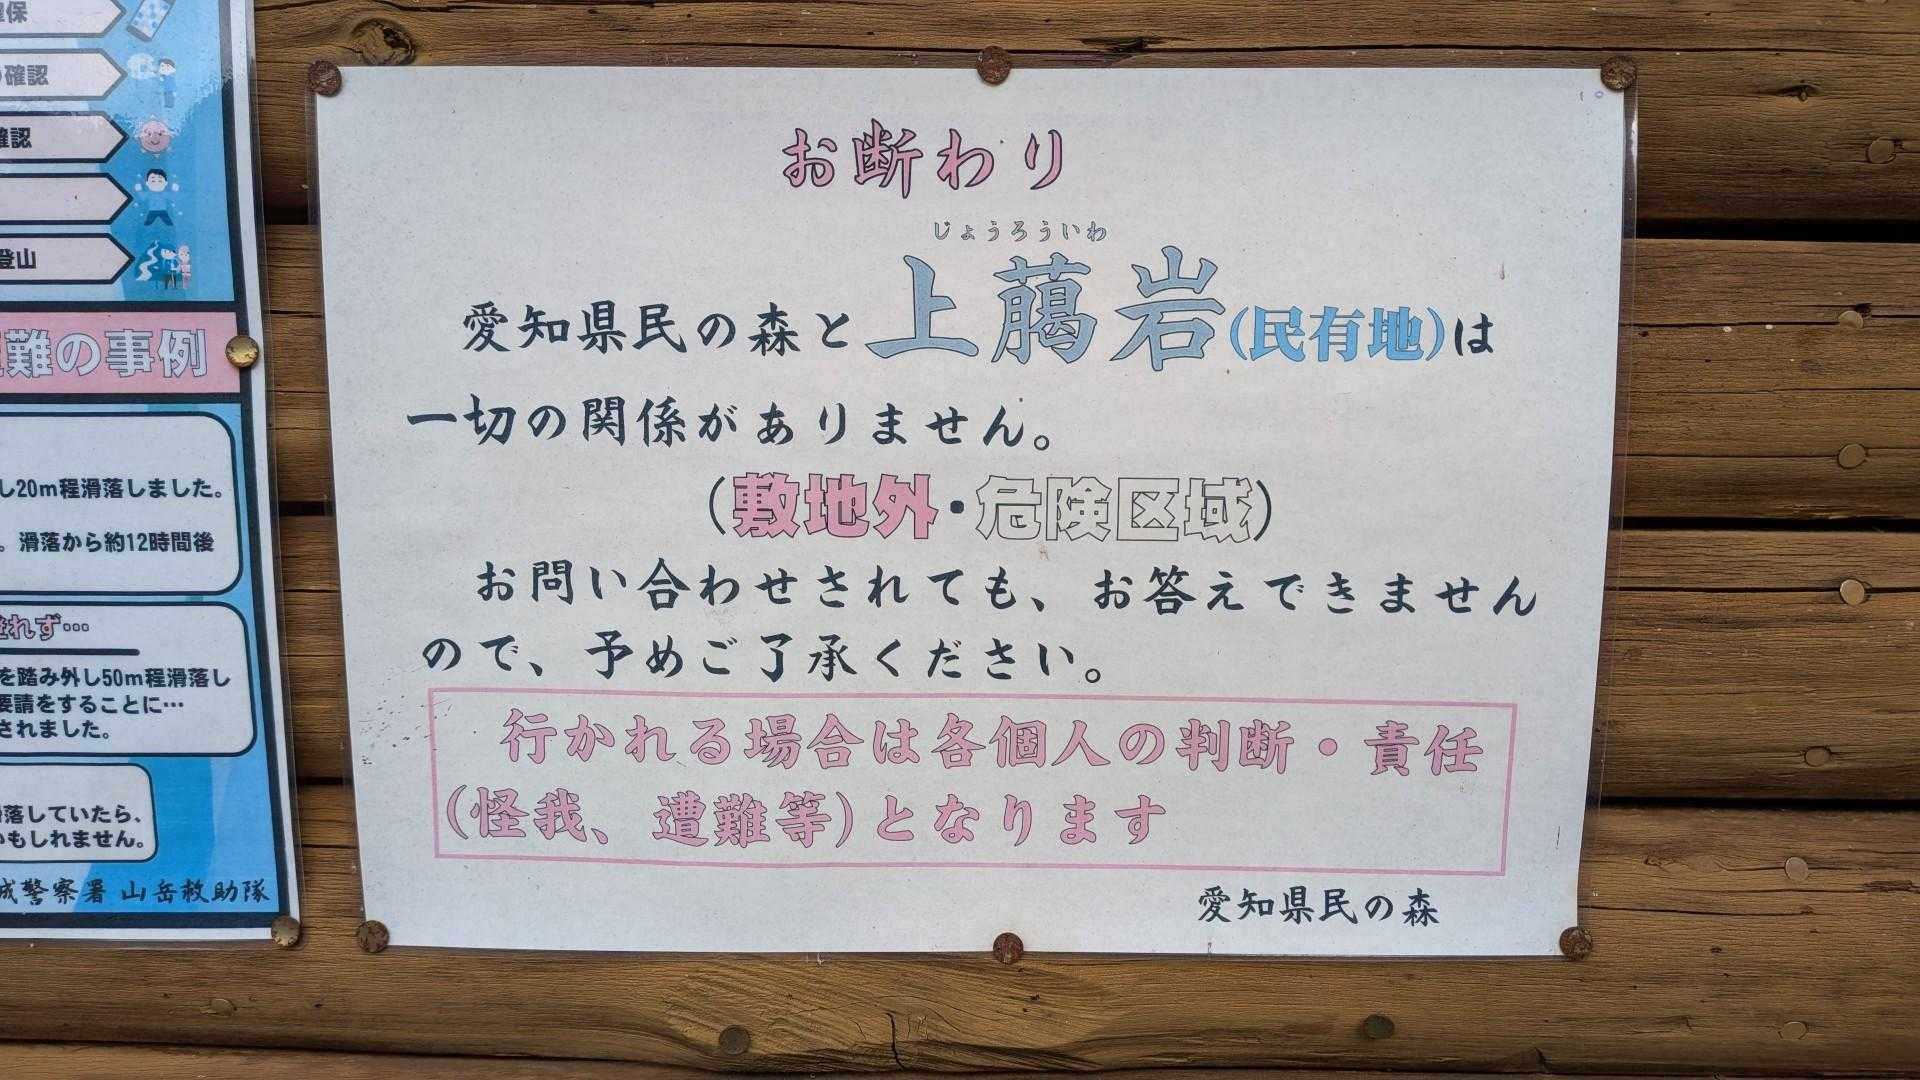 確保
の確認
確認
登山
難の事例
し20m程滑落しました。
。滑落から約12時間後
れず…
を踏み外し50m程滑落し
要請をすることに…
されました。
落していたら、
いもしれません。
城警察署 山岳救助隊
お断わり
じょうろういわ
愛知県民の森と上臈岩(民有地)は
一切の関係がありません。
(敷地外・危険区域)
お問い合わせされても、お答えできません
ので、予めご了承ください。
行かれる場合は各個人の判断・責任
(怪我、遭難等)となります
愛知県民の森